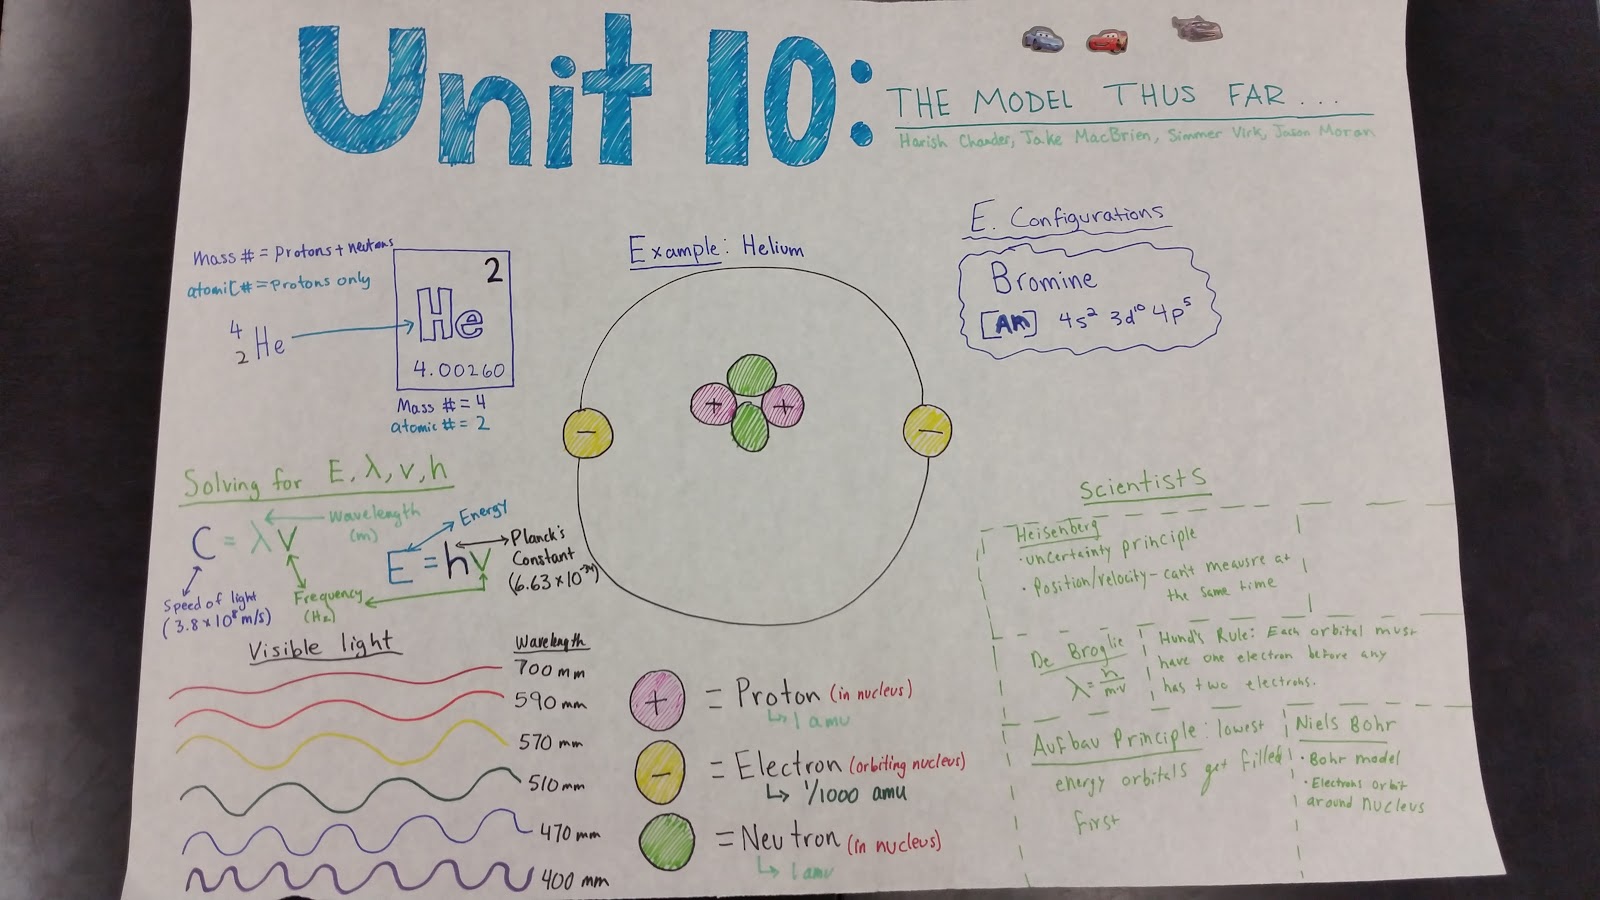 Unit 10:
THE MODEL THUS FAR...
Harish Chander, Jake MacBrien, Simmer Virk, Jason Moran
Mass # = Protons + neutrons
atomic # = Protons only
4
2 He
2
He
4.00260
Mass # = 4
atomic # = 2
Example: Helium
+ +
− −
E. Configurations
Bromine
[Ar] 4s² 3d¹⁰ 4p⁵
Solving for E, λ, v, h
C = λv
Wavelength
(m)
Speed of light
(3.8 x 10⁸ m/s)
Frequency
(Hz)
E = hv
Energy
Planck's
Constant
(6.63 x 10⁻³⁴)
Visible light
Wavelength
700 mm
590 mm
570 mm
510 mm
470 mm
400 mm
+ = Proton (in nucleus)
↳ 1 amu
− = Electron (orbiting nucleus)
↳ 1/1000 amu
= Neutron (in nucleus)
↳ 1 amu
Scientists
Heisenberg
· uncertainty principle
· Position/velocity – can't measure at
the same time
De Broglie
λ = h/mv
Hund's Rule: Each orbital must
have one electron before any
has two electrons.
Aufbau Principle: lowest
energy orbitals get filled
first
Niels Bohr
· Bohr model
· Electrons orbit
around nucleus